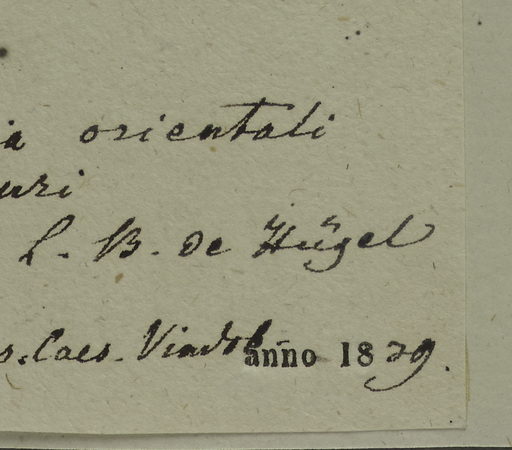 ia orientali
uri
L. B. de Hügel
s. Caes. Vindob.
anno 1839.